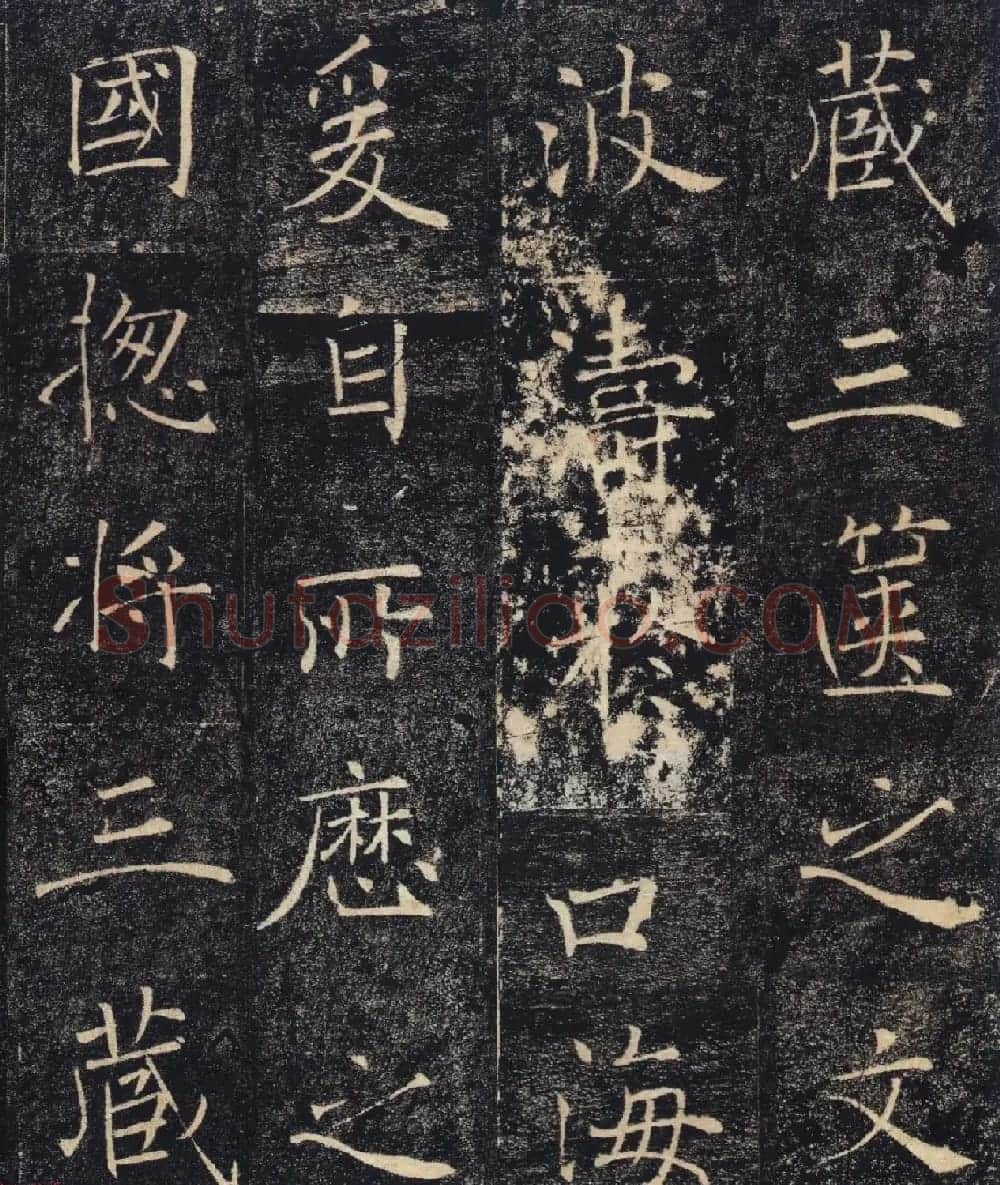 藏三篋之文
波濤於口海
爰自所歷之
國揔將三藏
Shufaziliao.COM